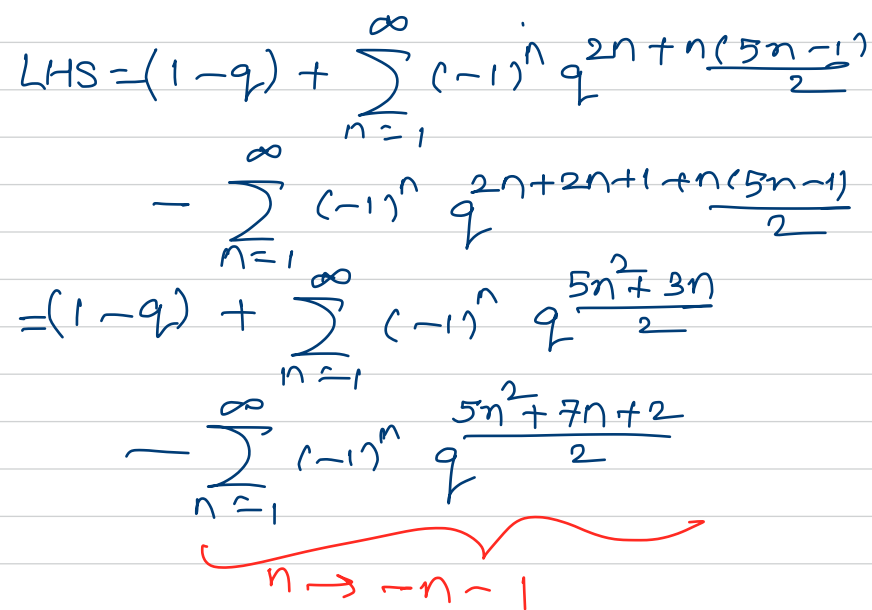 LHS = (1-q) + ∑_{n=1}^{∞} (-1)^n q^{2n + n(5n-1)/2}
- ∑_{n=1}^{∞} (-1)^n q^{2n+2n+1+n(5n-1)/2}
= (1-q) + ∑_{n=1}^{∞} (-1)^n q^{(5n^2+3n)/2}
- ∑_{n=1}^{∞} (-1)^n q^{(5n^2+7n+2)/2}
n → -n-1